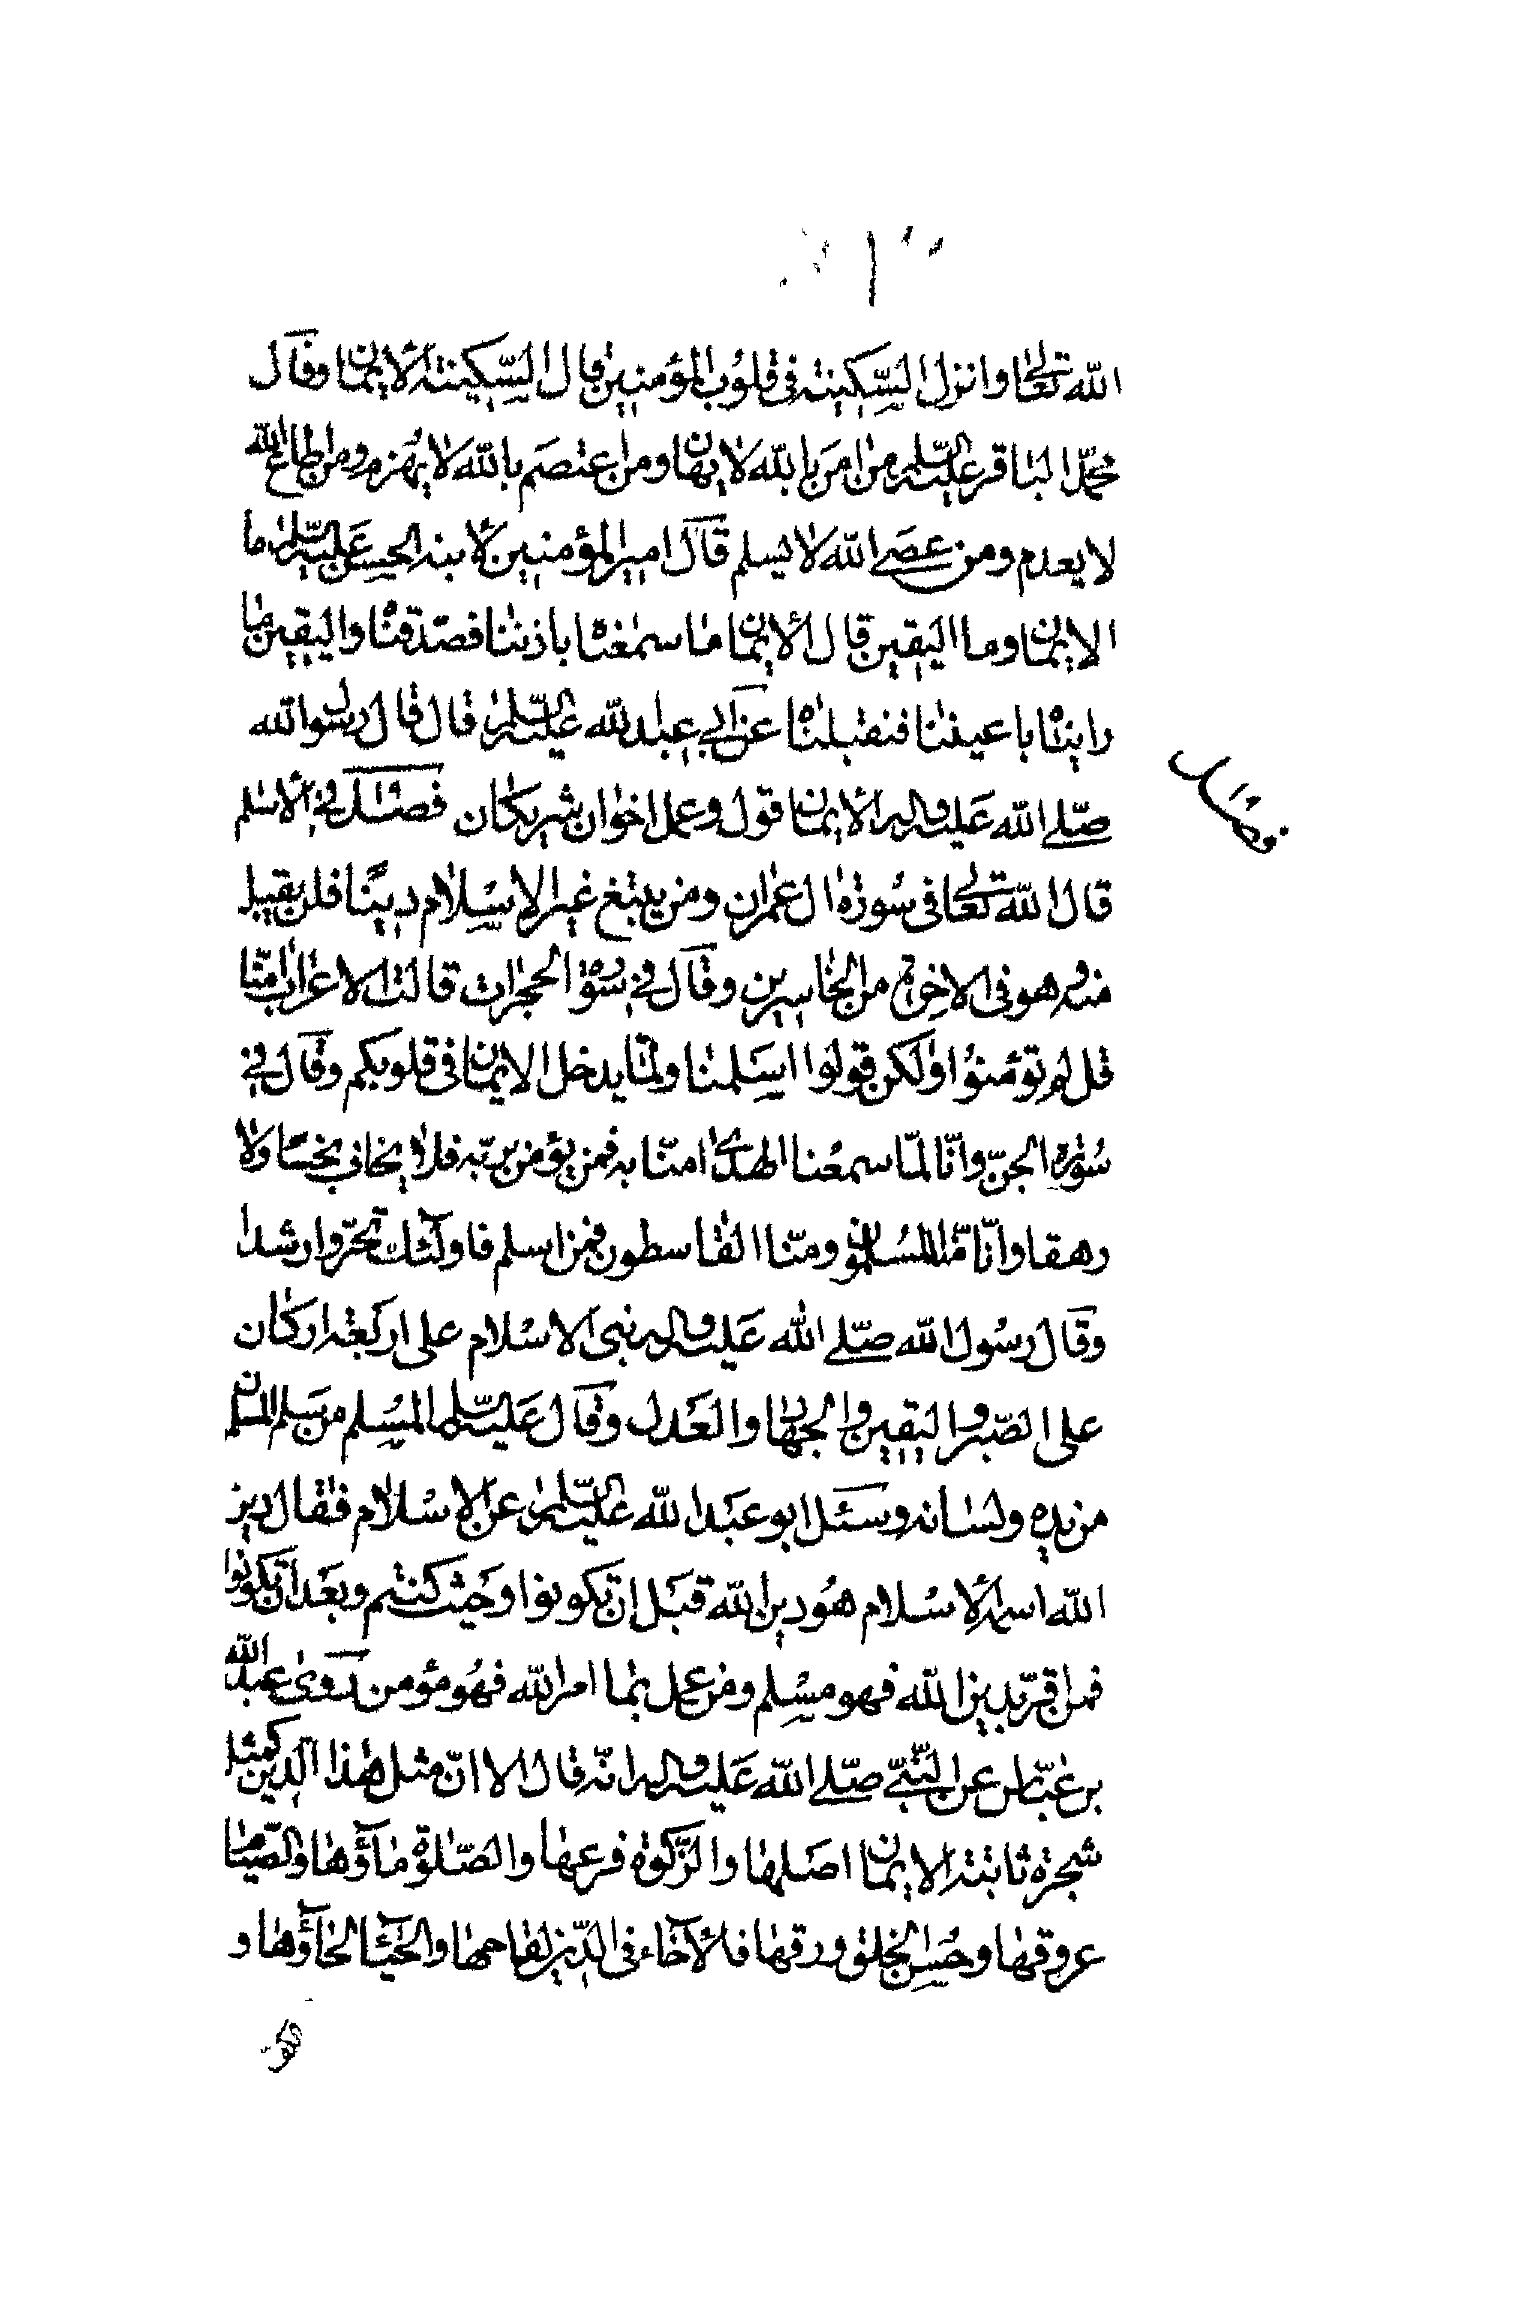 الله تعالى وانزل السكينة فى قلوب المؤمنين قال السكينة الايمان وقال
محمد الباقر عليه السلم من امن بالله لا يهان ومن اعتصم بالله لا يهزم ومن اطاع الله
لا يعدم ومن عصى الله لا يسلم قال امير المؤمنين لابنه الحسن عليه السلم ما
الايمان وما اليقين قال الايمان ما سمعناه باذننا فصدقناه واليقين ما
رايناه باعيننا فنقبلناه عن ابى عبد الله عليه السلم قال قال رسول الله
صلى الله عليه واله الايمان قول وعمل اخوان شريكان فصل فى الاسلم
قال الله تعالى فى سورة ال عمران ومن يبتغ غير الاسلام دينا فلن يقبل
منه وهو فى الاخرة من الخاسرين وقال فى سورة الحجرات قالت الاعراب امنا
قل لم تؤمنوا ولكن قولوا اسلمنا ولما يدخل الايمان فى قلوبكم وقال فى
سورة الجن وانا لما سمعنا الهدى امنا به فمن يؤمن بربه فلا يخاف بخسا ولا
رهقا وانا منا المسلمون ومنا القاسطون فمن اسلم فاولئك تحروا رشدا
وقال رسول الله صلى الله عليه واله بنى الاسلام على اربعة اركان
على الصبر واليقين والجهاد والعدل وقال عليه السلم المسلم من سلم المسلمون
من يده ولسانه وسئل ابو عبد الله عليه السلم عن الاسلام فقال دين
الله اسمه الاسلام هو دين الله قبل ان تكونوا وحيث كنتم وبعد ان تكونوا
فمن اقر بدين الله فهو مسلم ومن عمل بما امر الله فهو مؤمن روى عبد الله
بن عباس عن النبى صلى الله عليه واله انه قال الا ان مثل هذا الدين كمثل
شجرة ثابتة الايمان اصلها والزكوة فرعها والصلوة ماؤها والصيام
عروقها وحسن الخلق ورقها والاخاء فى الدين لقاحها والحياء لحاؤها و
فصل